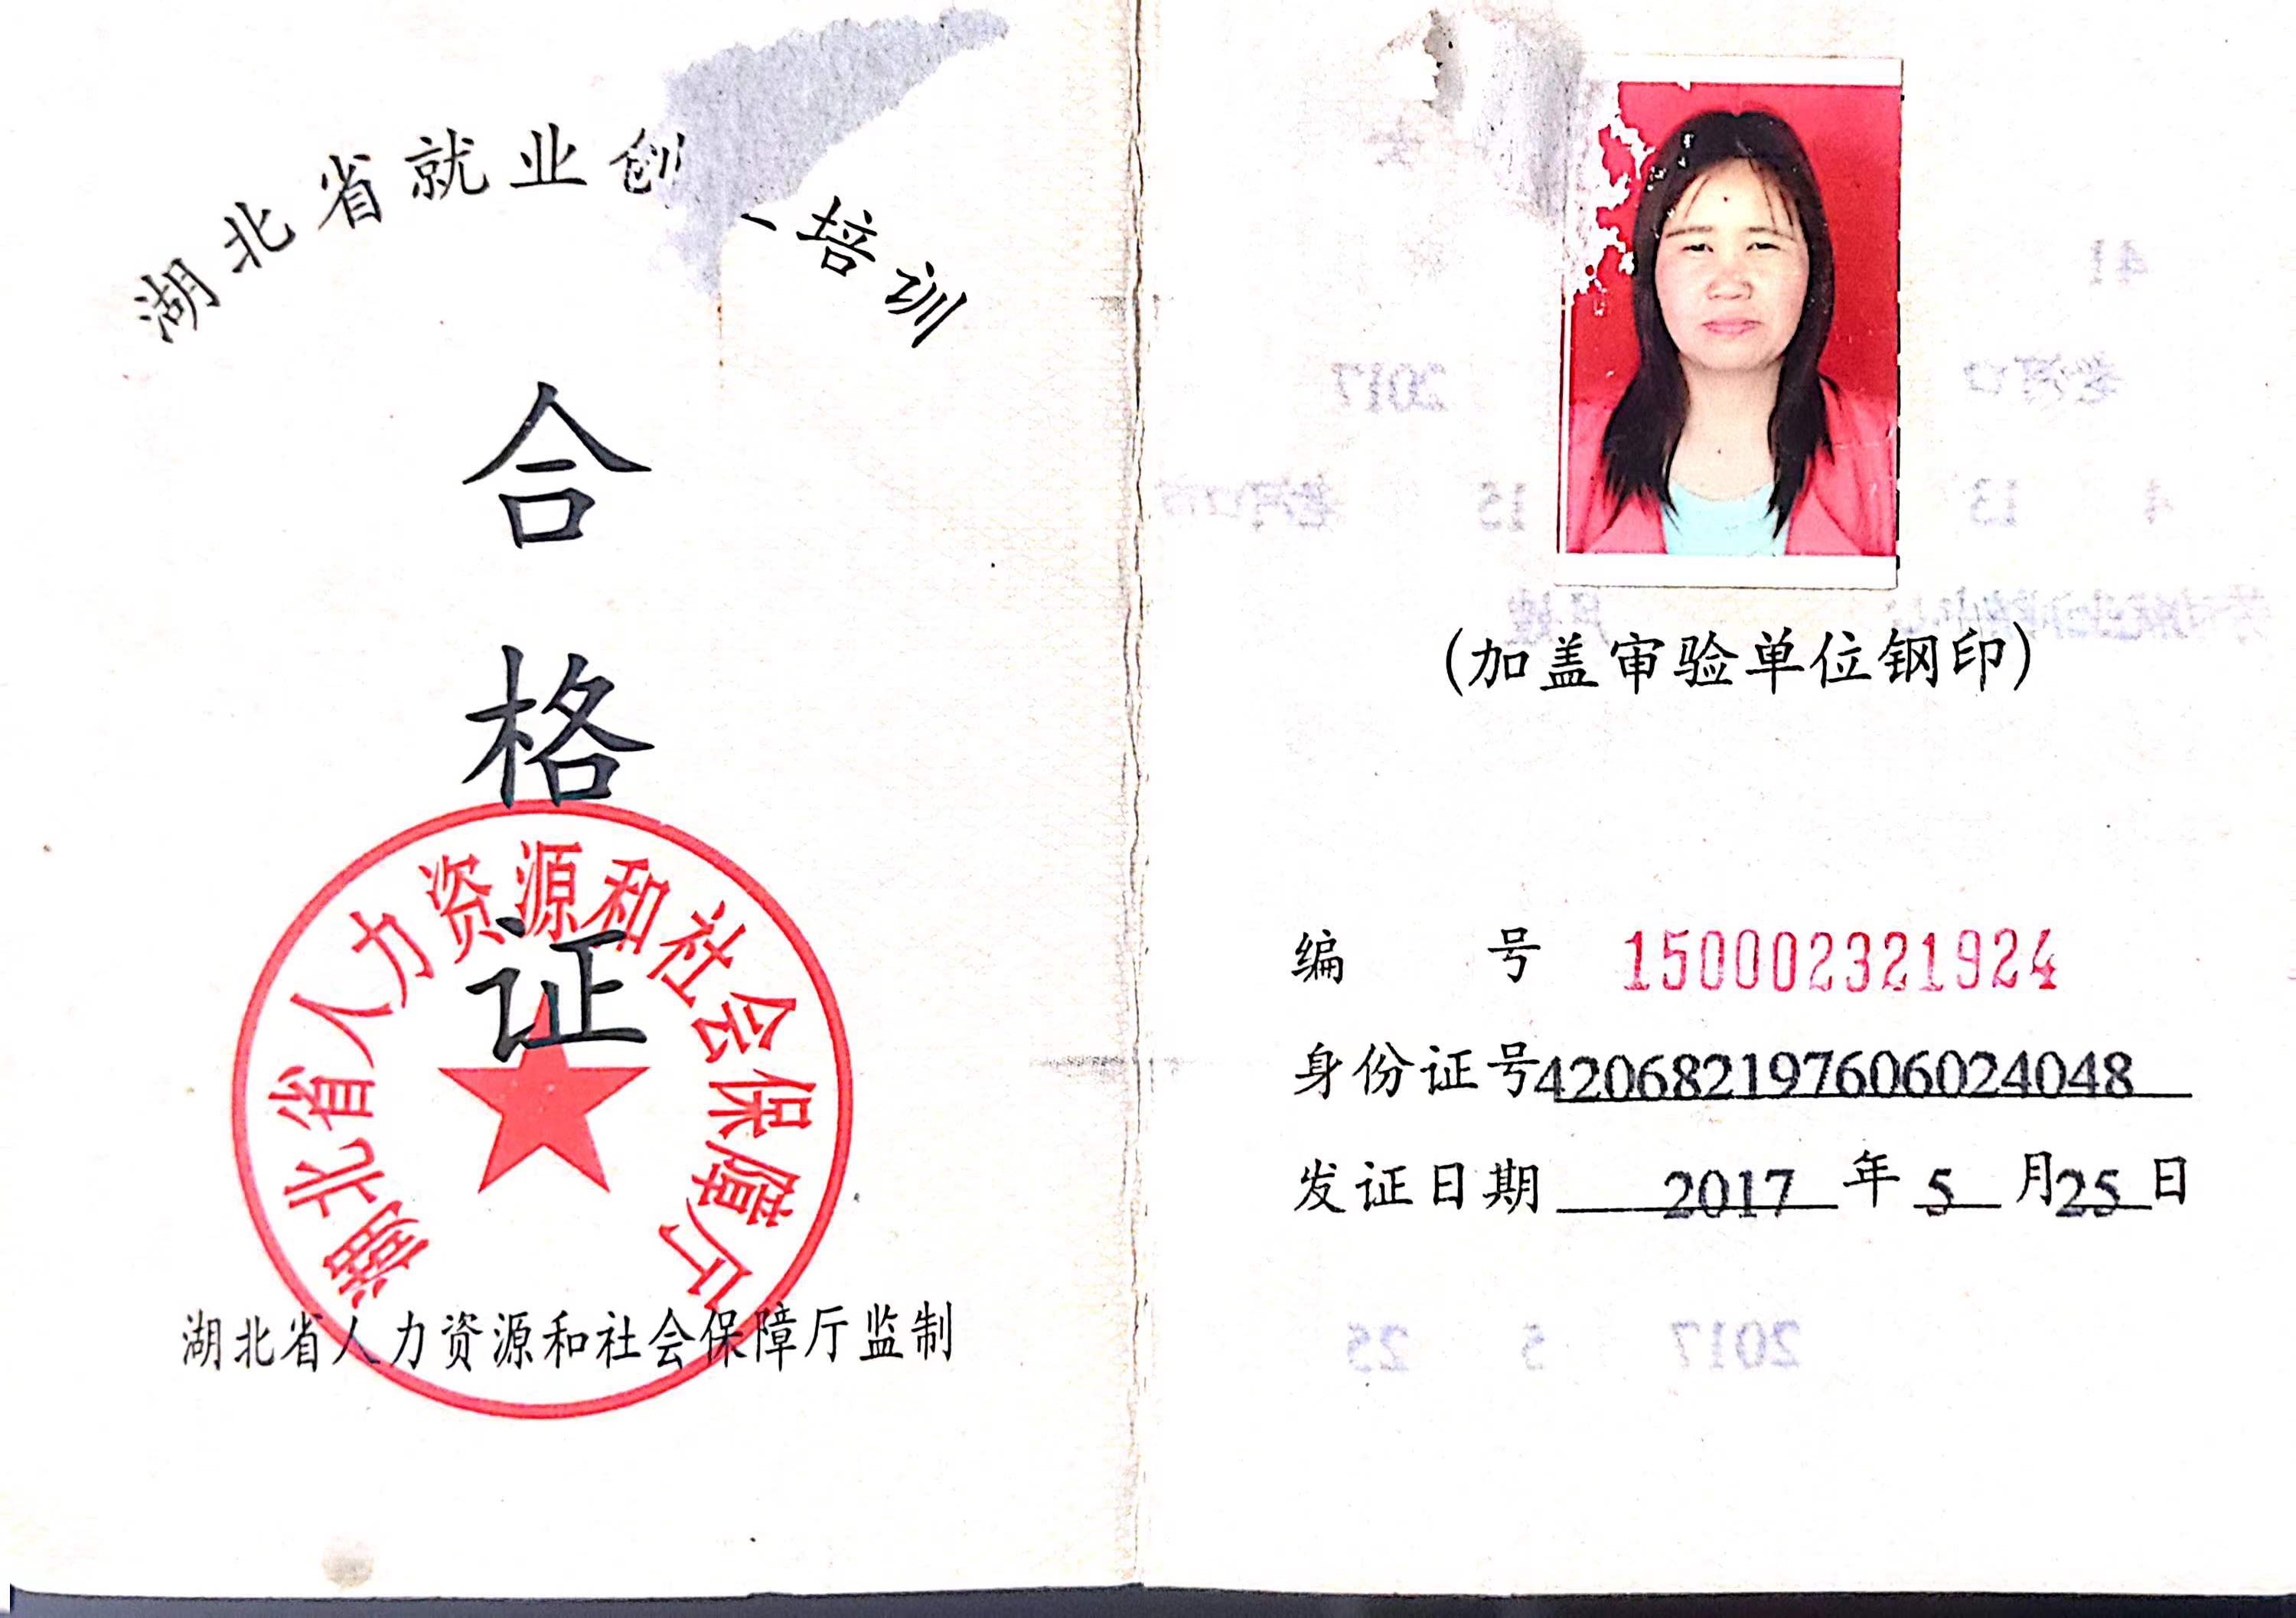 湖北省就业创 培训
合
格
证
湖北省人力资源和社会保障厅
湖北省人力资源和社会保障厅监制
(加盖审验单位钢印)
编 号 150002321924
身份证号420682197606024048
发证日期 2017 年 5 月25日